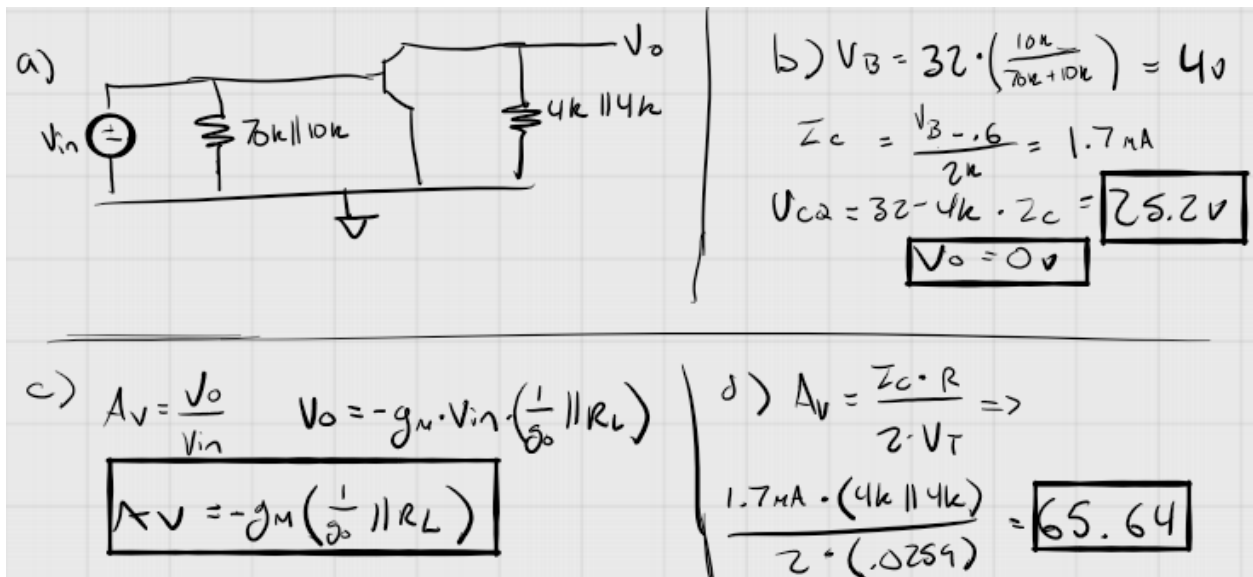 a)
Vin
70k||10k
Vo
4k||4k
b) VB = 32·(10k/(70k+10k)) = 4v
Ic = (VB-.6)/2k = 1.7mA
VCQ = 32-4k·Ic = 25.2v
Vo = 0v
c) Av = Vo/Vin Vo = -gM·Vin·(1/go || RL)
Av = -gM(1/go || RL)
d) Av = Ic·R/(2·VT) =>
1.7mA·(4k||4k)/(2·(.0259)) = 65.64